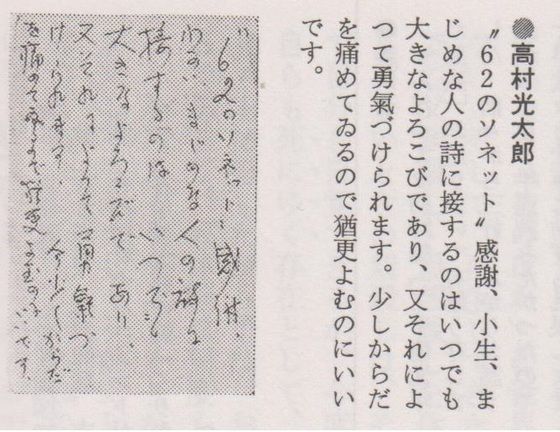 ●高村光太郎
〝62のソネット〟感謝、小生、ま
じめな人の詩に接するのはいつでも
大きなよろこびであり、又それによ
つて勇氣づけられます。少しからだ
を痛めてゐるので猶更よむのにいい
です。
〝62のソネット〟感謝、
小生、まじめな人の詩に
接するのは いつでも
大きなよろこびで あり、
又それによつて 勇氣づ
けられます。 少しからだ
を痛めてゐるので猶更よむのにいいです。